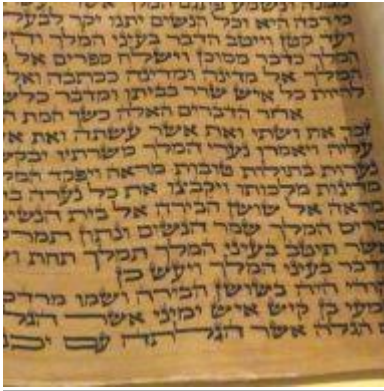 ונשמע פתגם
רבה היא וכל הנשים יתנו יקר
ועד קטן וייטב הדבר בעיני המלך
המלך כדבר ממוכן וישלח ספרים אל
המלך אל מדינה ומדינה ככתבה ואל
להיות כל איש שרר בביתו ומדבר
אחר הדברים האלה כשך חמת
זכר את ושתי ואת אשר עשתה ואת
עליה ויאמרו נערי המלך משרתיו
נערות בתולות טובות מראה ויפקד
מדינות מלכותו ויקבצו את כל נערה
מראה אל שושן הבירה אל בית
סריס המלך שמר הנשים ונתון
אשר תיטב בעיני המלך תמלך תחת
בעיני המלך ויעש כן
היה בשושן הבירה ושמו מרדכי
בן קיש איש ימיני אשר
הגלה אשר הגלתה עם